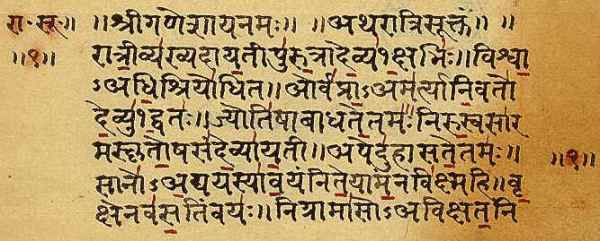 रा॰सू॰ ॥श्रीगणेशायनमः॥ ॥अथरात्रिसूक्तं॥ ॥
॥१॥ रात्रीव्यख्यदायतीपुरुत्रादेव्य१क्षभिः॥विश्वा
ऽअधिश्रियोधित॥ओर्वप्राऽअमर्त्यानिवतो
देव्यु१द्वतः॥ज्योतिषाबाधतेतमः॥निरुस्वसार
मस्कृतोषसंदेव्यायती॥अपेदुहासतेतमः॥
सानोऽअद्ययस्यावयंनितेयामन्नविक्ष्महि॥वृ ॥१॥
क्षेनवसतिंवयः॥निग्रामासोऽअविक्षतनि